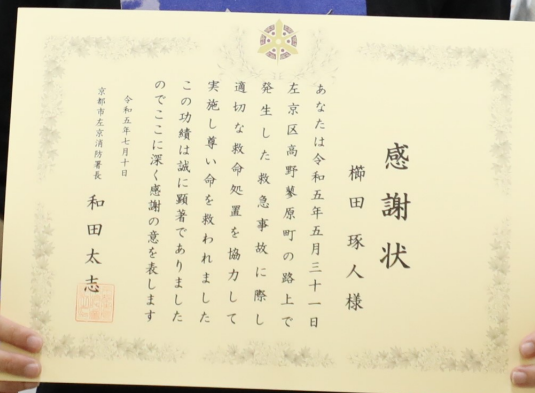 感謝状
櫛田琢人様
あなたは令和五年五月三十一日
左京区高野蓼原町の路上で
発生した救急事故に際し
適切な救命処置を協力して
実施し尊い命を救われました
この功績は誠に顕著でありました
のでここに深く感謝の意を表します
令和五年七月十日
京都市左京消防署長
和田太志